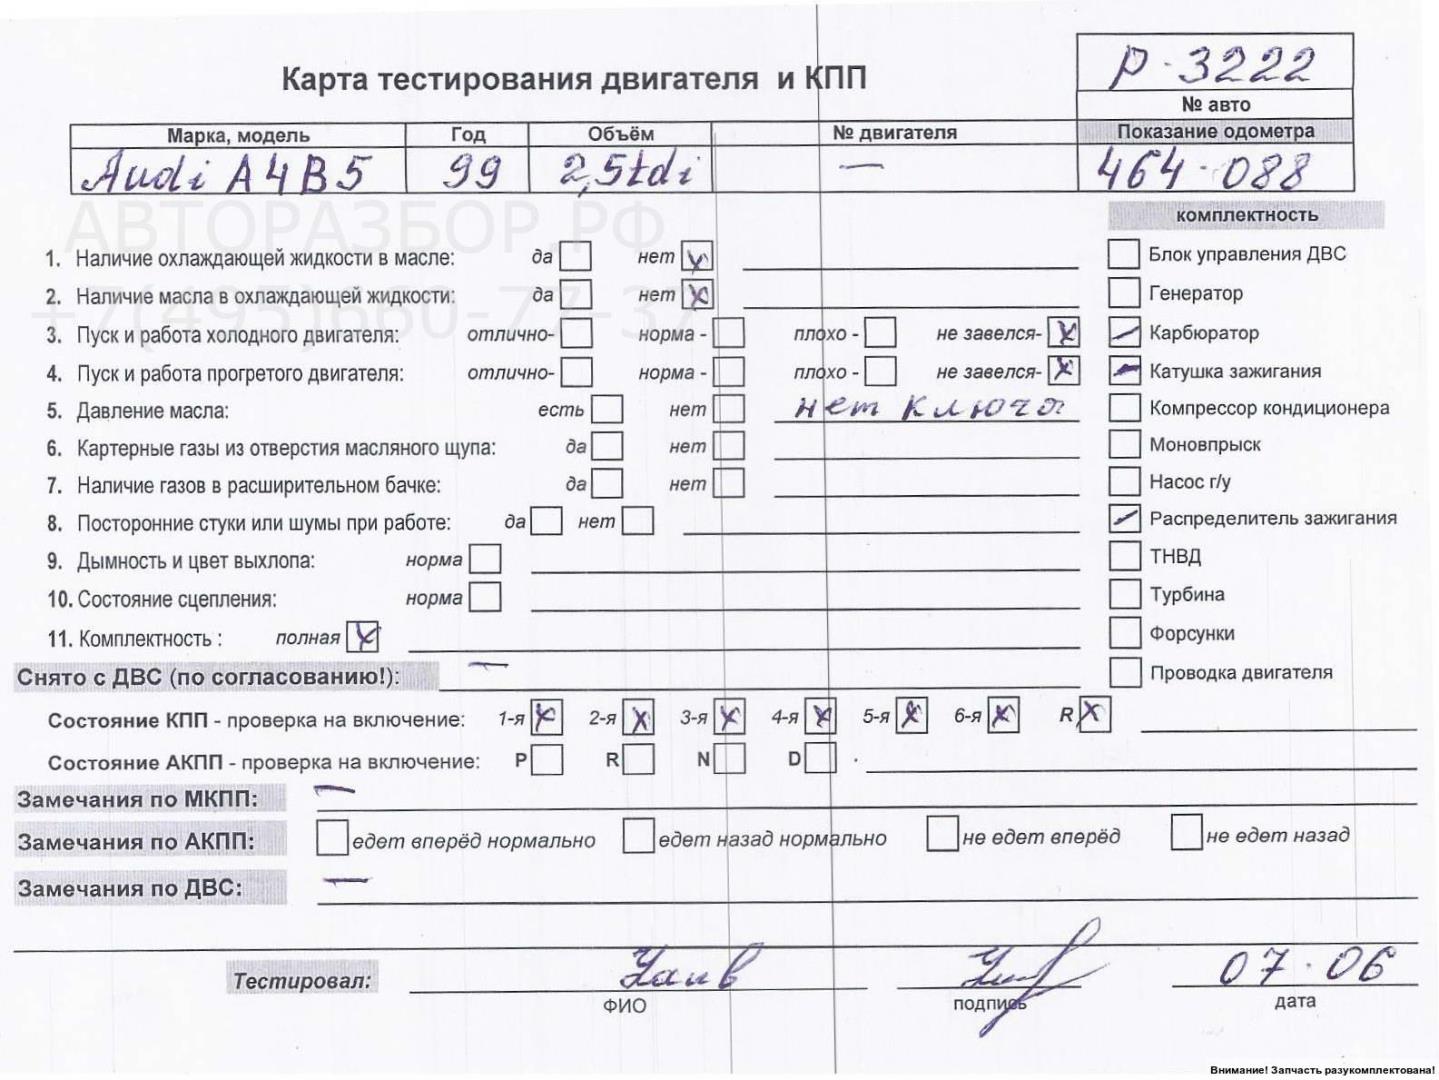 Р-3222
Карта тестирования двигателя и КПП
№ авто
Марка, модель Год Объём № двигателя Показание одометра
Audi A4B5 99 2,5tdi — 464-088
АВТОРАЗБОР.РФ
комплектность
1. Наличие охлаждающей жидкости в масле: да нет
Блок управления ДВС
2. Наличие масла в охлаждающей жидкости: да нет
Генератор
+7(495)660-77-37
3. Пуск и работа холодного двигателя: отлично- норма - плохо - не завелся-
Карбюратор
4. Пуск и работа прогретого двигателя: отлично- норма - плохо - не завелся-
Катушка зажигания
5. Давление масла: есть нет нет ключа
Компрессор кондиционера
6. Картерные газы из отверстия масляного щупа: да нет
Моновпрыск
7. Наличие газов в расширительном бачке: да нет
Насос г/у
8. Посторонние стуки или шумы при работе: да нет
Распределитель зажигания
9. Дымность и цвет выхлопа: норма
ТНВД
10. Состояние сцепления: норма
Турбина
11. Комплектность : полная
Форсунки
Снято с ДВС (по согласованию!): —
Проводка двигателя
Состояние КПП - проверка на включение: 1-я 2-я 3-я 4-я 5-я 6-я R
Состояние АКПП - проверка на включение: P R N D
Замечания по МКПП: —
Замечания по АКПП: едет вперёд нормально едет назад нормально не едет вперёд не едет назад
Замечания по ДВС: —
Тестировал: 07.06
ФИО подпись дата
Внимание! Запчасть разукомплектована!